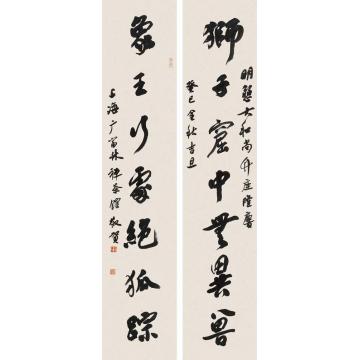 獅子窟中無異獸
明慧大和尚升座隆慶
癸巳金秋吉旦
象王行處絕狐蹤
上海广富林禅
敬賀